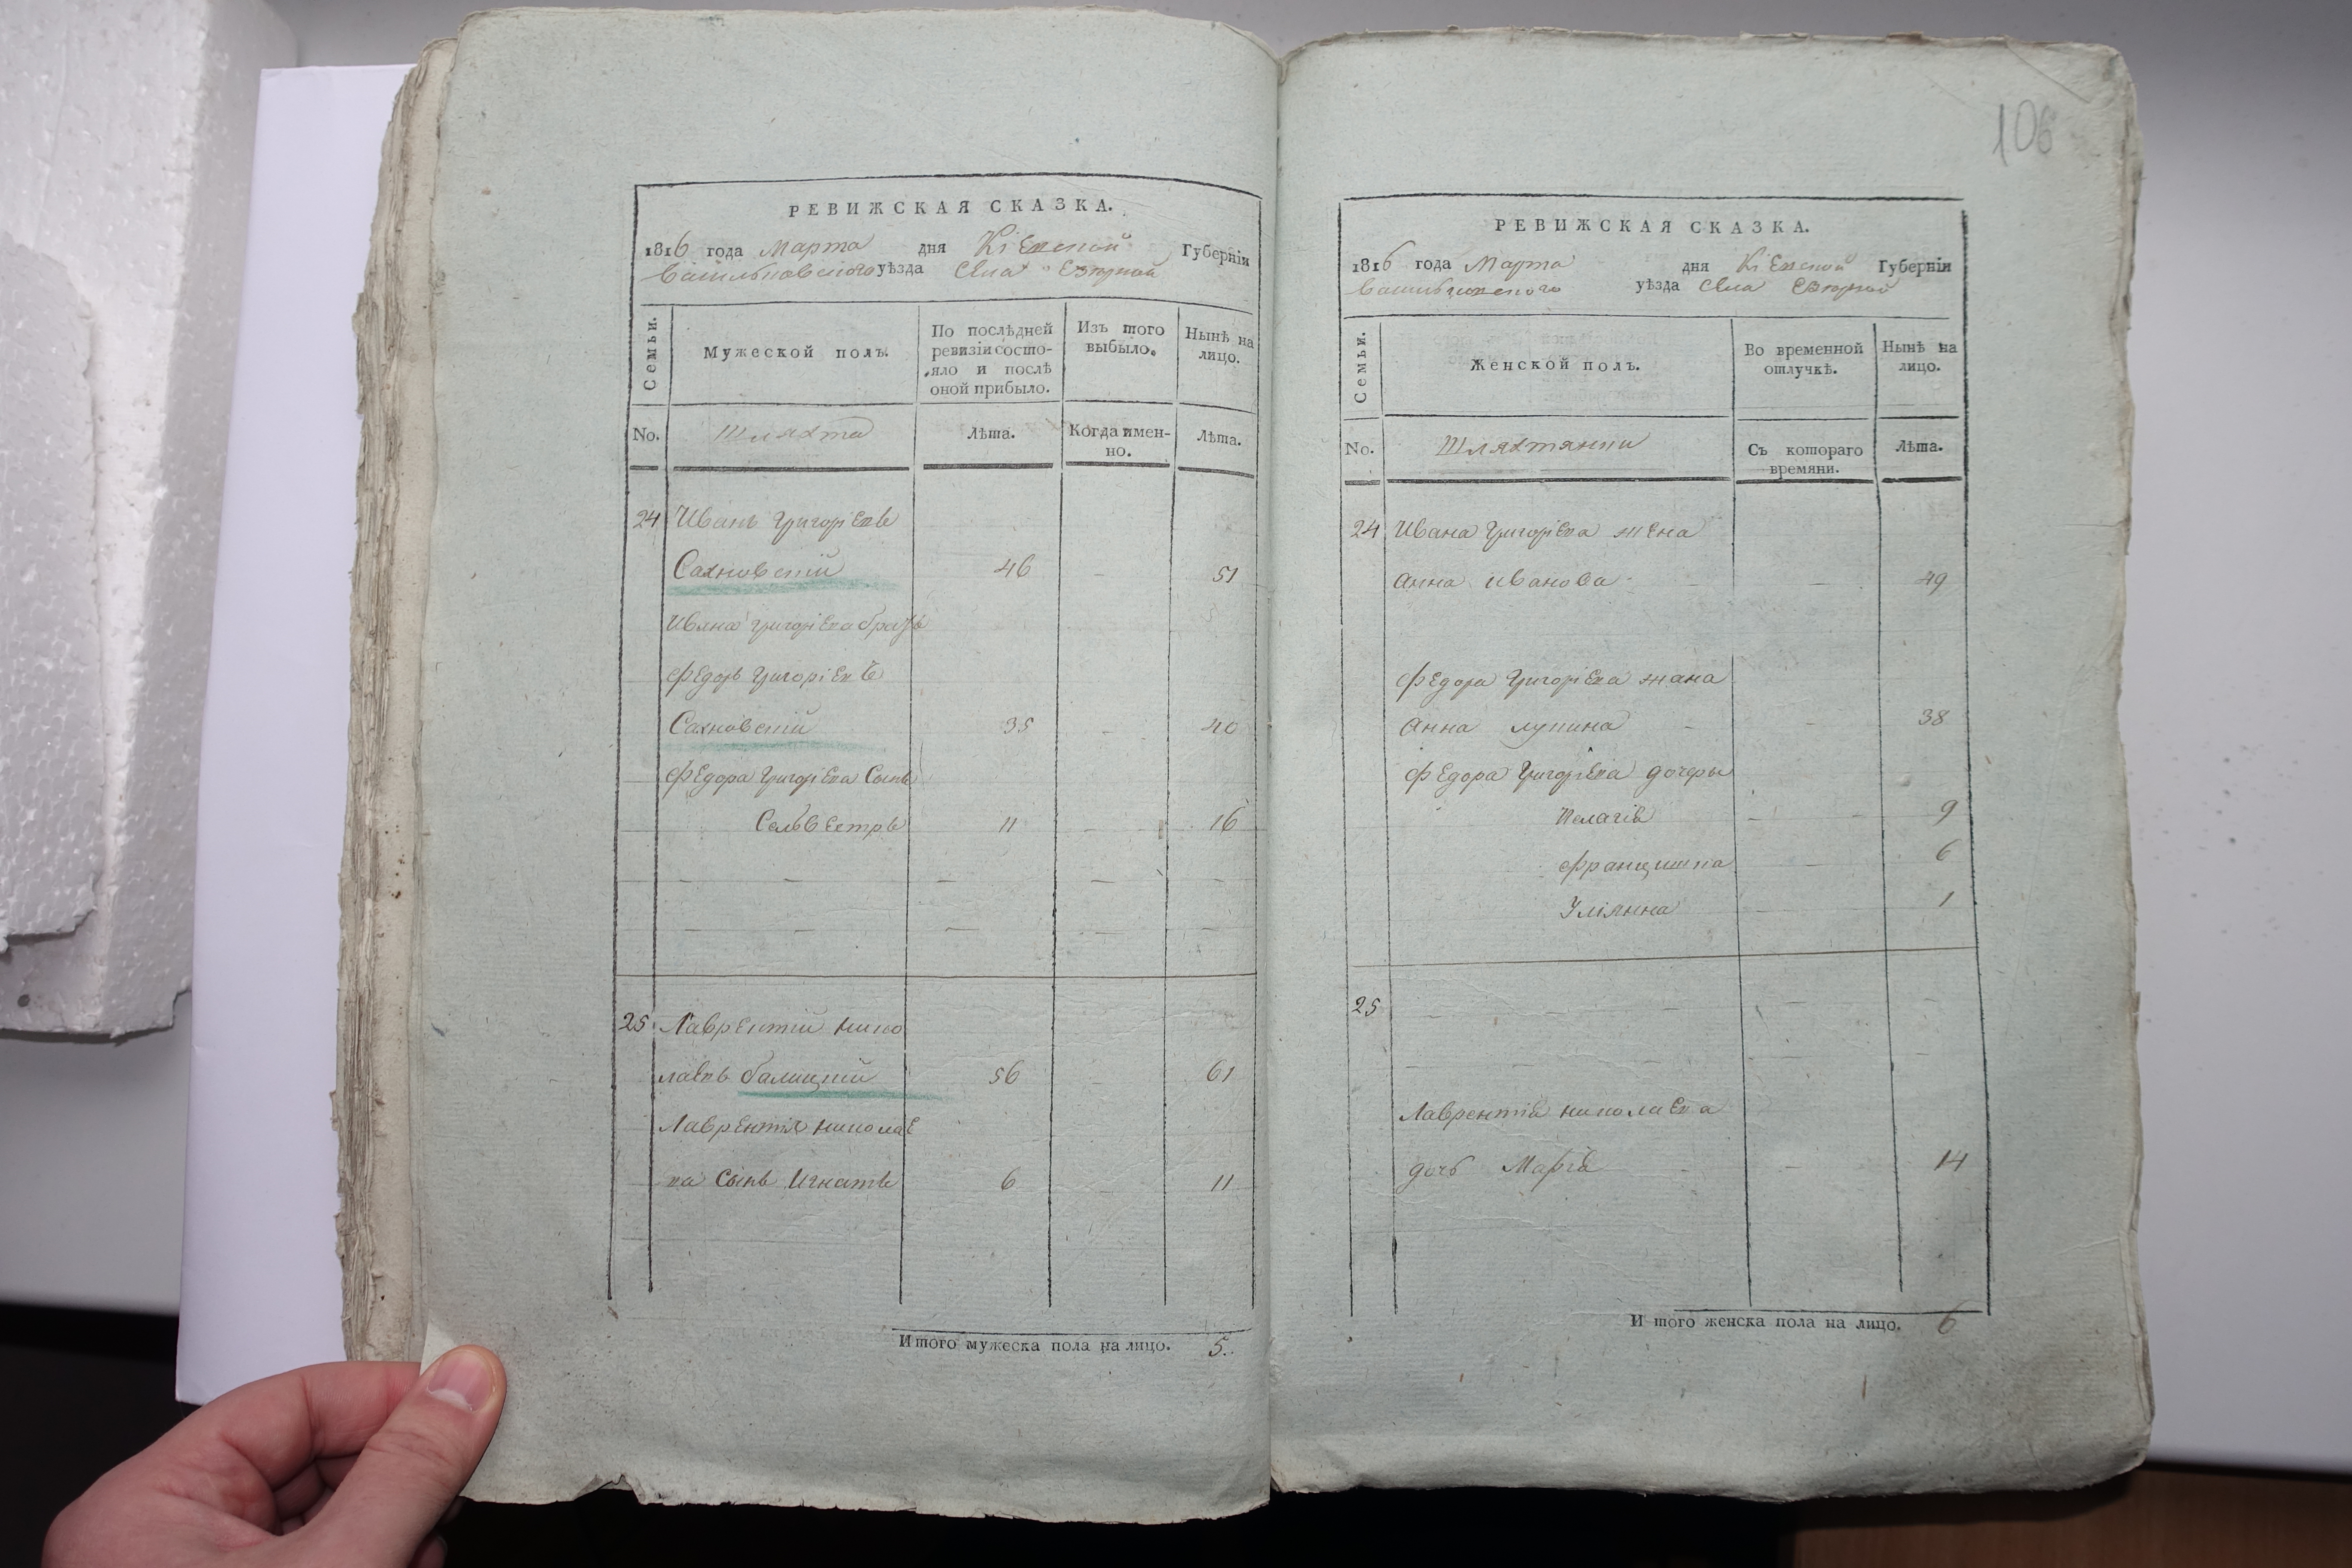 РЕВИЖСКАЯ СКАЗКА.
1816 года Марта дня Кіевской Губерніи
Васильковского уѣзда Села Езерной
Семьи.
Мужеской полъ.
По послѣдней ревизіи состо-
яло и послѣ оной прибыло.
Изъ того выбыло.
Нынѣ на лицо.
No. Шляхта Лѣта. Когда имен-
но. Лѣта.
24 Иванъ Григоріевъ
Сахновскій 46 51
Ивана Григоріева братъ
Федоръ Григоріевъ
Сахновскій 35 40
Федора Григоріева Сынъ
Сельвестръ 11 16
25 Лаврентій Нико
лаевъ Балицкій 56 61
Лаврентія Николае
ва Сынъ Игнатъ 6 11
Итого мужеска пола на лицо. 5.
106
РЕВИЖСКАЯ СКАЗКА.
1816 года Марта дня Кіевской Губерніи
Васильковского уѣзда Села Езерной
Семьи.
Женской полъ.
Во временной отлучкѣ.
Нынѣ на лицо.
No. Шляхтянки Съ котораго
времяни. Лѣта.
24 Ивана Григоріева жена
Анна Иванова 49
Федора Григоріева жана
Анна Лукина 38
Федора Григоріева дочеры
Пелагія 9
Францишка 6
Уліянна 1
25
Лаврентія Николаева
дочь Марія 14
Итого женска пола на лицо. 6